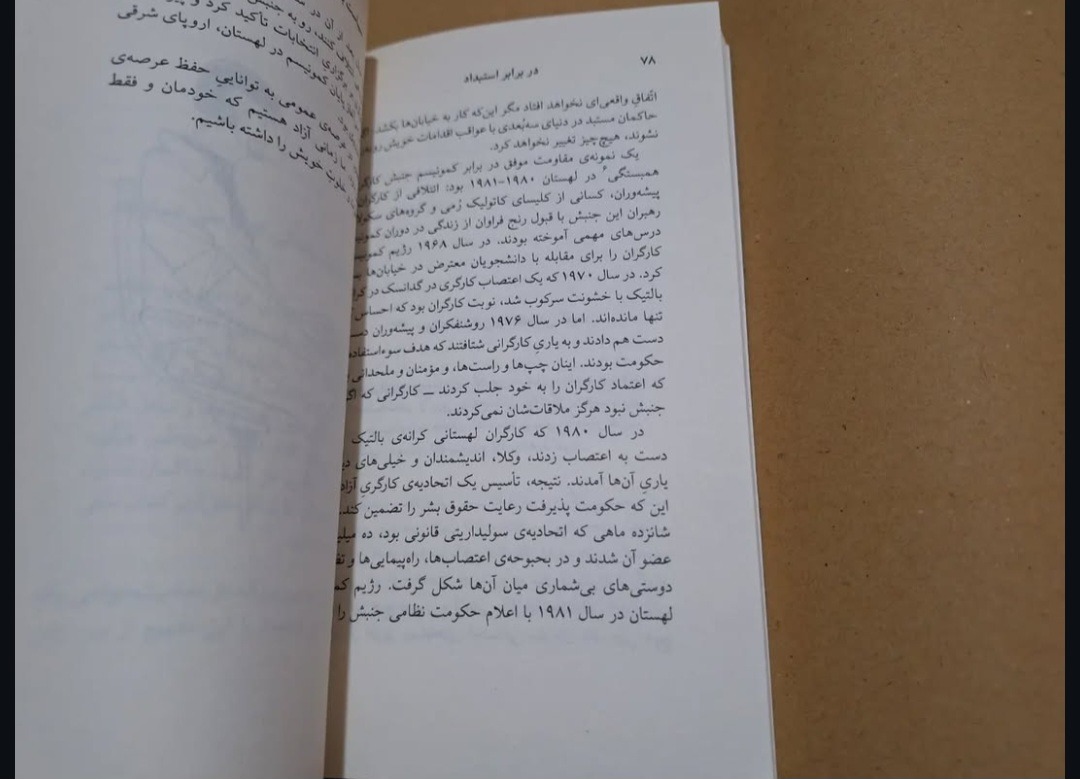 ۷۸
در برابر استبداد
اتّفاقِ واقعی‌ای نخواهد افتاد مگر این‌که کار به خیابان‌ها بکشد.
حاکمان مستبد در دنیای سه‌بُعدی با عواقب اقدامات خویش
نشوند، هیچ‌چیز تغییر نخواهد کرد.
یک نمونه‌ی مقاومت موفق در برابر کمونیسم جنبش
همبستگی۶ در لهستان ۱۹۸۰-۱۹۸۱ بود: ائتلافی از کارگران
پیشه‌وران، کسانی از کلیسای کاتولیک رُمی و گروه‌های
رهبران این جنبش با قبول رنج فراوان از زندگی در دوران
درس‌های مهمی آموخته بودند. در سال ۱۹۶۸ رژیم
کارگران را برای مقابله با دانشجویان معترض در خیابان‌ها
کرد. در سال ۱۹۷۰ که یک اعتصاب کارگری در گدانسک در
بالتیک با خشونت سرکوب شد، نوبت کارگران بود که احساس
تنها مانده‌اند. اما در سال ۱۹۷۶ روشنفکران و پیشه‌وران
دست هم دادند و به یاریِ کارگرانی شتافتند که هدف سوءاستفاده
حکومت بودند. اینان چپ‌ها و راست‌ها، و مؤمنان و ملحدانی
که اعتماد کارگران را به خود جلب کردند ــ کارگرانی که
جنبش نبود هرگز ملاقات‌شان نمی‌کردند.
در سال ۱۹۸۰ که کارگران لهستانی کرانه‌ی بالتیک
دست به اعتصاب زدند، وکلا، اندیشمندان و خیلی‌های
یاریِ آن‌ها آمدند. نتیجه، تأسیس یک اتحادیه‌ی کارگریِ آزاد
این که حکومت پذیرفت رعایت حقوق بشر را تضمین کند.
شانزده ماهی که اتحادیه‌ی سولیداریتی قانونی بود، ده
عضو آن شدند و در بحبوحه‌ی اعتصاب‌ها، راه‌پیمایی‌ها و
دوستی‌های بی‌شماری میان آن‌ها شکل گرفت. رژیم
لهستان در سال ۱۹۸۱ با اعلام حکومت نظامی جنبش را
بعد از آن در
کنند، رو به
برگزاری انتخابات تأکید کرد و
پایان کمونیسم در لهستان، اروپای شرقی
عرصه‌ی عمومی به تواناییِ حفظ عرصه‌ی
ما زمانی آزاد هستیم که خودمان و فقط
خلوت خویش را داشته باشیم.